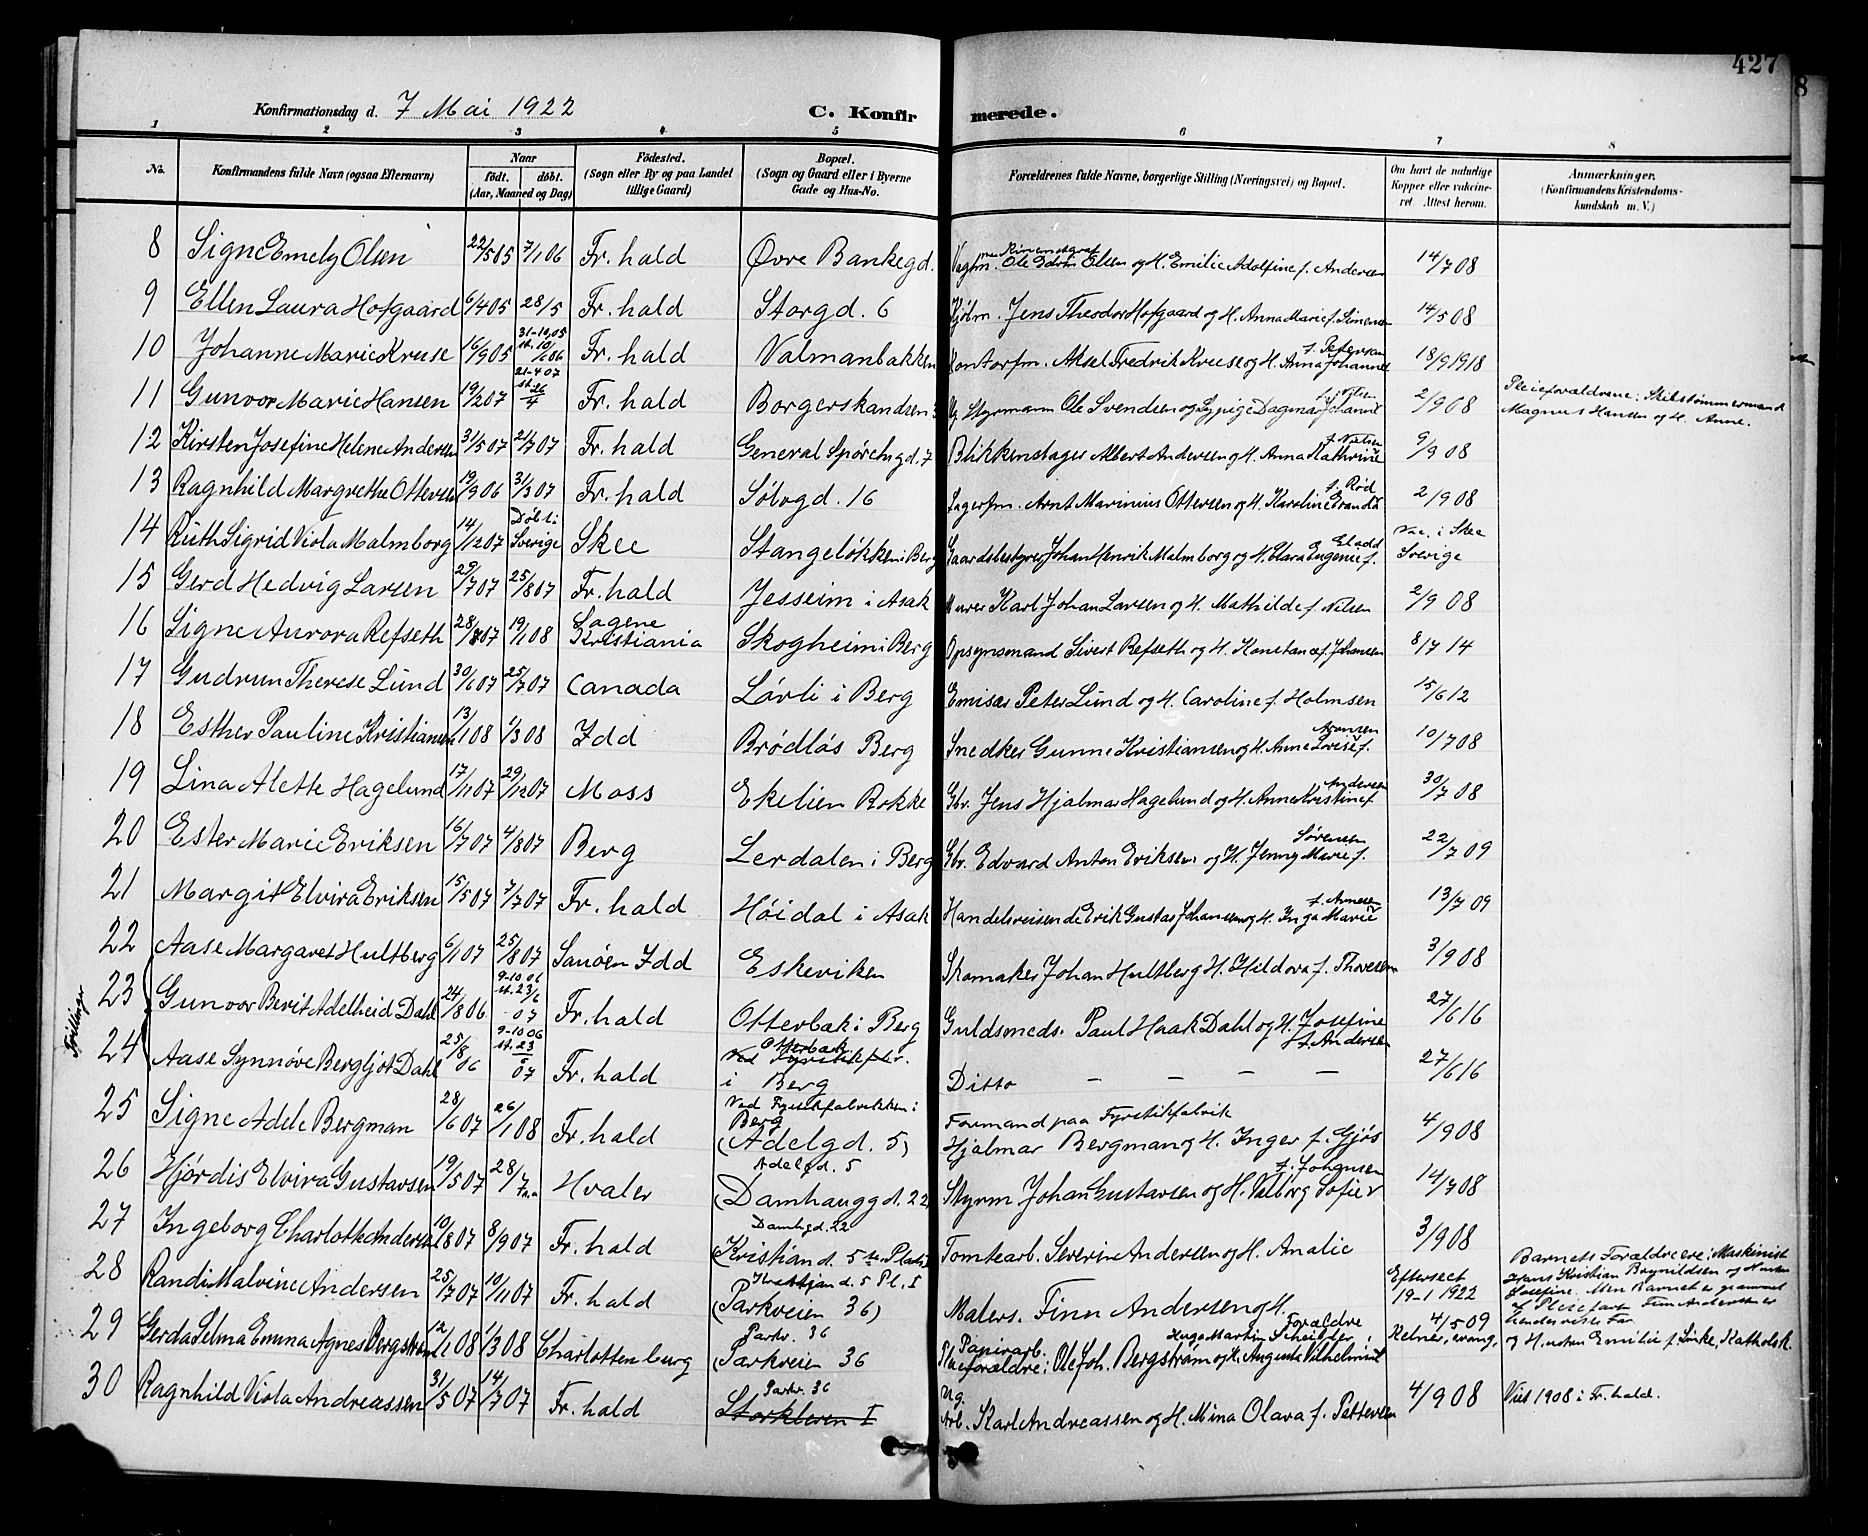 427
8
Konfirmationsdag d. 7 Mai 1922 C. Konfirmerede.
1 2 3 4 5 6 7 8
No. Konfirmandens fulde Navn (ogsaa Efternavn) Naar født. døbt. (Aar, Maaned og Dag) Fødested. (Sogn eller By og paa Landet tillige Gaard) Bopæl. (Sogn og Gaard eller i Byerne Gade og Hus-No. Forældrenes fulde Navne, borgerlige Stilling (Næringsvei) og Bopæl. Om havt de naturlige Kopper eller vaccineret Attest herom. Anmerkninger. (Konfirmandens Kristendomskundskab m. V.)
8 Signe Emely Olsen 22/5 05 7/1 06 Fr. hald Øvre Bankegd. Ole Edvin Olsen og H. Emilie Adolfine f. Andersen 14/7 08
9 Ellen Laura Hofgaard 6/4 05 28/5 Fr. hald Storgd. 6 Kjøbm. Jens Theodor Hofgaard og H. Anna Marie f. Simensen 14/5 08
10 Johanne Marie Kruse 16/9 05 31-10 05 st. 10/1 06 Fr. hald Valmanbakken Kontorfm. Aksel Fredrik Kruse og H. Anna Johanne f. Petersen 18/9 1918
11 Gunvor Marie Hansen 19/2 07 21-4 07 st. 26/4 Fr. hald Borgerskandsen Ug. Styrmann Ole Svendsen og Ug. pige Dagmar Johanne f. Nilsen 2/9 08 Pleieforældrene: Skibstømmermand Magnus Hansen og H. Anne.
12 Kirsten Josefine Helene Andersen 31/5 07 21/7 07 Fr. hald General Spørckgd. 7 Blikkenslager Albert Andersen og H. Anna Kathrine f. Nielsen 9/9 08
13 Ragnhild Margrethe Ottersen 19/9 06 31/3 07 Fr. hald Sølvgd. 16 Lagerfm. Arnt Marinius Ottersen og H. Karoline Eranda f. Rød 2/9 08
14 Ruth Sigrid Viola Malmborg 14/12 07 Døbt i Sverige Skee Stangeløkken i Berg Gaardsbestyrer Johan Henrik Malmborg og H. Clara Eugenie f. Vac. i Skee Sverige
15 Gerd Hedvig Larsen 29/7 07 25/8 07 Fr. hald Jesseim i Asak Murer Karl Johan Larsen og H. Mathilde f. Nilsen 2/9 08
16 Signe Aurora Refseth 28/ 07 19/1 08 Sagene Kristiania Skogheim i Berg Opsynsmand Sivert Refseth og H. Konstance f. Johansen 8/7 14
17 Gudrun Therese Lund 30/6 07 25/7 07 Canada Løvli i Berg Emisær Peter Lund og H. Caroline f. Holmsen 15/6 12
18 Esther Pauline Kristiansen 13/1 08 1/3 08 Idd Brødløs Berg Snedker Gunne Kristiansen og H. Anne Lovise f. Aronsen 10/7 08
19 Lina Alette Hagelund 17/11 07 29/12 07 Moss Ekelien Rokke Gbr. Jens Hjalmar Hagelund og H. Anne Kristine f. Andersen 30/7 08
20 Ester Marie Eriksen 16/7 07 4/8 07 Berg Lerdalen i Berg Gbr. Edvard Anton Eriksen og H. Jenny Marie f. Sørensen 22/7 09
21 Margit Elvira Eriksen 15/5 07 7/7 07 Fr. hald Høidal i Asak Handelsreisende Erik Gustav Johansen og H. Inga Marie f. Arnesen 13/7 09
22 Aase Margaret Hultberg 6/1 07 25/8 07 Sauøen Idd Eskeviken Skomaker Johan Hultberg H. Hildora f. Thoresen 3/9 08
Tvillinger
23 Gunvor Berit Adelheid Dahl 24/8 06 9-10 06 st. 23/6 07 Fr. hald Otterbæk i Berg Guldsmeds. Paul Haak Dahl og H. Josefine f. Andersen 27/6 16
24 Aase Synnøve Bergljot Dahl 25/8 06 9-10 06 st. 23/ 07 Fr. hald Otterbæk Ved i Berg Ditto — — — — 27/6 16
25 Signe Adele Bergman 28/6 07 26/1 08 Fr. hald Ved Fyrstikfabrikken i Berg (Adelgd. 5) Formand paa Fyrstikfabrik Hjalmar Bergman og H. Inger f. Gjøs 4/9 08
26 Hjørdis Elvira Gustavsen 19/5 07 28/7 Hvaler Adelgd. 5 (Damhauggd. 22) Styrm Johan Gustavsen og H. Valborg Sofie f. Johansen 14/7 08
27 Ingeborg Charlotte Andersen 10/8 07 8/9 07 Fr. hald Damhgd. 22 (Kristiand. 5te Plads) Tomtearb. Severin Andersen og H. Analie 3/9 08
28 Randi Malvine Andersen 25/7 07 10/11 07 Fr. hald Kristjand. 5 Pl. I (Parkveien 36) Malers. Finn Andersen og H. Eftersect 19-1 1922 Barnets Forældre ere: Maskinist Hans Kristian Brynildsen og Hustru Josefine. Men Barnet er Pleiefaren Finn Andersen er hendes Far
29 Gerda Selma Emma Agnes Bergstrøm 12/1 08 1/3 08 Charlottenburg Parkv. 36 (Parkveien 36 Papirarb. Forældre Hugo Martin Pleieforældre: Ole Joh. Bergstrøm og H. Auguste Vilhelmine 4/5 09 og Hustru Emilie f. Katholsk.
30 Ragnhild Viola Andreassen 31/5 07 14/7 07 Fr. hald Parkv. 36 Storkleven I Ug. Arb. Karl Andreassen og H. Mina Olava f. Pettersen 4/9 08 Viet 1908 i Fr. hald.